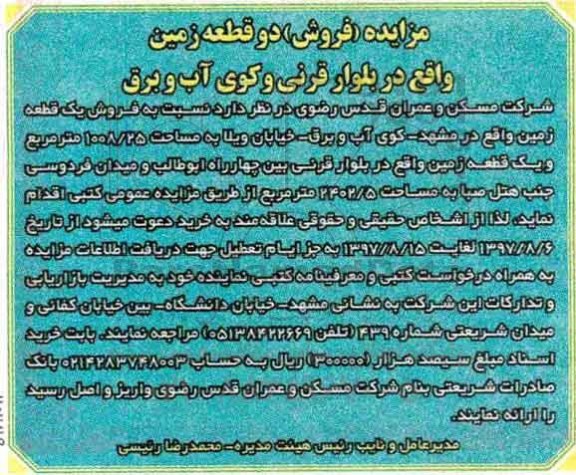 مزایده (فروش) دو قطعه زمین
واقع در بلوار قرنی و کوی آب و برق
شرکت مسکن و عمران قدس رضوی در نظر دارد نسبت به فروش یک قطعه
زمین واقع در مشهد-کوی آب و برق-خیابان ویلا به مساحت ۱۰۰۸/۲۵ مترمربع
و یک قطعه زمین واقع در بلوار قرنی بین چهارراه ابوطالب و میدان فردوسی
جنب هتل صبا به مساحت ۲۴۰۲/۵ مترمربع از طریق مزایده عمومی کتبی اقدام
نماید. لذا از اشخاص حقیقی و حقوقی علاقه مند به خرید دعوت میشود از تاریخ
۱۳۹۷/۸/۶ لغایت ۱۳۹۷/۸/۱۵ به جز ایام تعطیل جهت دریافت اطلاعات مزایده
به همراه درخواست کتبی و معرفینامه کتبی نماینده خود به مدیریت بازاریابی
و تدارکات این شرکت به نشانی مشهد-خیابان دانشگاه-بین خیابان کفائی و
میدان شریعتی شماره ۴۳۹ (تلفن ۰۵۱۳۸۴۲۲۶۶۹) مراجعه نمایند. بابت خرید
اسناد مبلغ سیصد هزار (۳۰۰۰۰۰) ریال به حساب ۰۲۱۴۲۸۳۷۴۸۰۰۳ بانک
صادرات شریعتی بنام شرکت مسکن و عمران قدس رضوی واریز و اصل رسید
را ارائه نمایند.
مدیرعامل و نایب رئیس هیئت مدیره- محمدرضا رئیسی